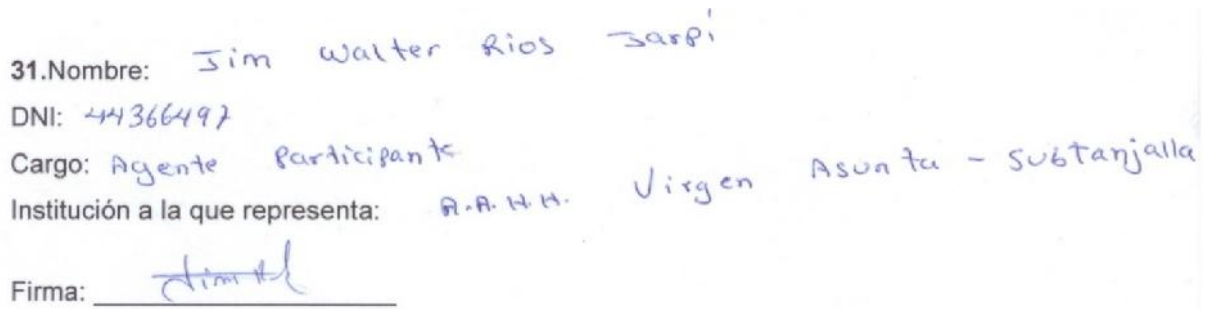 31.Nombre: Jim Walter Rios Jarpi
DNI: 44366497
Cargo: Agente Participante
Institución a la que representa: A.A.H.H. Virgen Asunta - Subtanjalla
Firma: